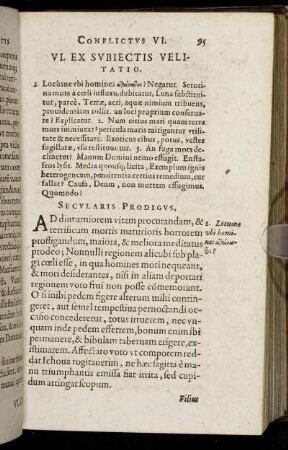 CONFLICTVS VI. 95
VI. EX SVBIECTIS VELI-
TATIO.
1. Locusne vbi homines Negatur. Seroti-
na mors à cœli influxu, dubitatur, Luna substitui-
tur, parcè, Terræ, aeri, aquæ nimium tribuens,
prouidentiam vilit. an loci proprium conserua-
re? Explicatur. 2. Num citius mari quam terra
mors imminat? pericula maris mitigantur vtili-
tate & necessitate. Exoticus cibus, potus, vestes
sugillatæ, visa restituitur. 3. An fuga mors de-
clinetur? Manum Domini nemo effugit. Enthu-
seos lysi. Media quousq; licita, Exemplum ignis
heterogeneum, pœnitentia certius remedium, cur
fallat? Causa, Deum, non mortem effugimus.
Quomodo?
SECVLARIS PRODIGVS,
AD diuturniorem vitam procurandam, &
terrificum mortis maturioris horrorem
profligandum, maiora, & meliora meditatus
prodeo; Nonnulli regionem alicubi sub pla-
ga cœli esse, in qua homines mori nequeant,
& mori desiderantes, nisi in aliam deportati
regionem voto frui non posse commemorant.
O si inibi pedem figere alterum mihi contin-
geret, aut senei tempestiua pernoctandi oc-
casio concederetur, totus irruerem, nec vn-
quam inde pedem efferrem, bonum enim ibi
permanere, & bibulam tabernam erigere, ex-
istimarem. Affectato voto vt compotem red-
dat Iehoua rogitauerim, ne hæc sagitta è ma-
nu triumphantis emissa fiat irrita, sed cupi-
dum attingat scopum.
1. Locusne
vbi homi-
nes
Filius